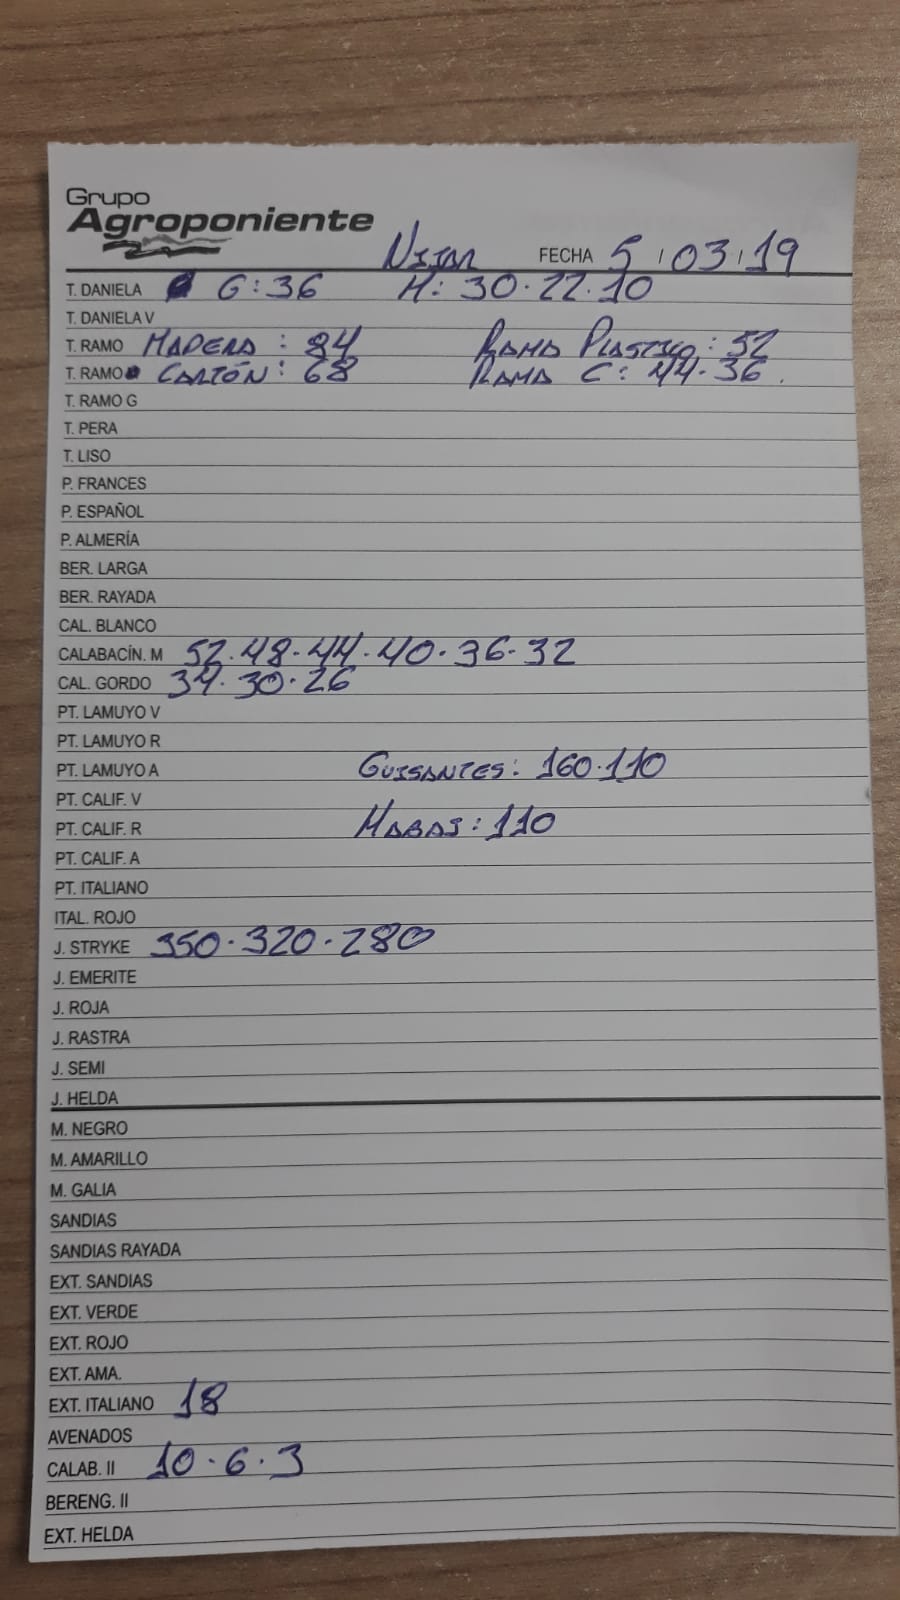 Grupo
Agroponiente
Nijar FECHA 5 / 03 / 19
T. DANIELA G: 36 M: 30·22·10
T. DANIELA V
T. RAMO MADERA: 84 RAMA PLASTICO: 52
T. RAMO CARTÓN: 68 RAMA C: 44·36.
T. RAMO G
T. PERA
T. LISO
P. FRANCES
P. ESPAÑOL
P. ALMERÍA
BER. LARGA
BER. RAYADA
CAL. BLANCO
CALABACÍN. M 52·48·44·40·36·32
CAL. GORDO 34·30·26
PT. LAMUYO V
PT. LAMUYO R
PT. LAMUYO A GUISANTES: 160·110
PT. CALIF. V
PT. CALIF. R HABAS: 110
PT. CALIF. A
PT. ITALIANO
ITAL. ROJO
J. STRYKE 350·320·280
J. EMERITE
J. ROJA
J. RASTRA
J. SEMI
J. HELDA
M. NEGRO
M. AMARILLO
M. GALIA
SANDIAS
SANDIAS RAYADA
EXT. SANDIAS
EXT. VERDE
EXT. ROJO
EXT. AMA.
EXT. ITALIANO 18
AVENADOS
CALAB. II 10·6·3
BERENG. II
EXT. HELDA